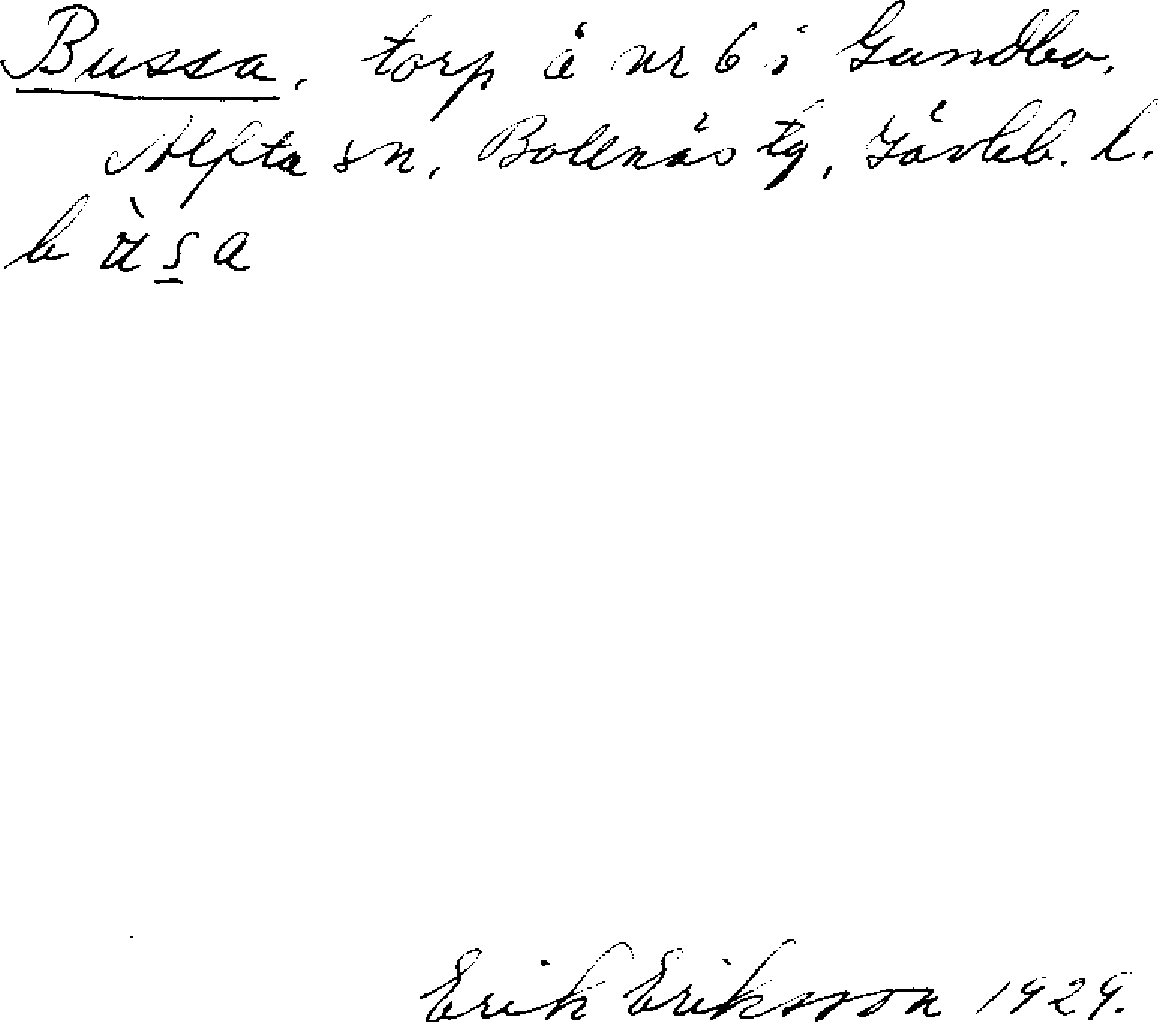 Bussa, torp å nr 6 i Gundbo,
Alfta sn, Bollnäs tg, Gävleb. l.
Erik Eriksson 1929.